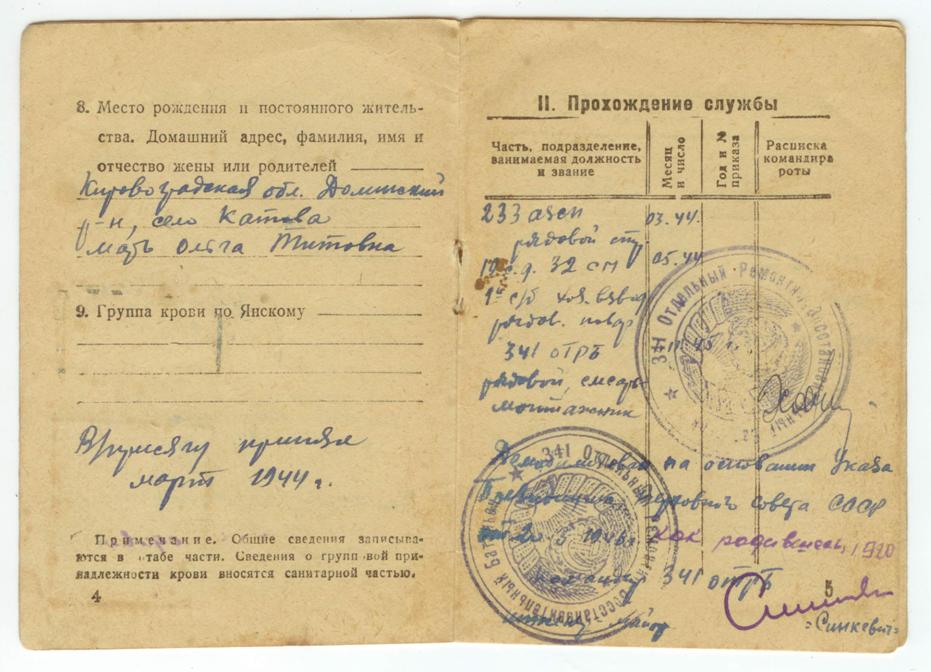 8. Место рождения и постоянного житель-
ства. Домашний адрес, фамилия, имя и
отчество жены или родителей
Кировоградская обл.
р-н, село
мать Ольга Титовна
9. Группа крови по Янскому
Присягу принял
март 1944 г.
Примечание. Общие сведения записыва-
ются в штабе части. Сведения о групповой при-
надлежности крови вносятся санитарной частью.
4
II. Прохождение службы
Часть, подразделение,
занимаемая должность
и звание
Месяц
и число
Год и №
приказа
Расписка
командира
роты
233 азсп 03.44.
рядовой
32 сп 05.44
хоз. взвод
рядов. повар
341 ОТРБ
рядовой, слесарь
монтажник
341 Отдельный Ремонтно Восстановительный
Демобилизован на основании Указа
Президиума Верховного совета СССР
как родившегося 1920
Командир 341 ОТРБ
майор
=Синкевич=
5
341 Отдельный Ремонтно Восстановительный Батальон